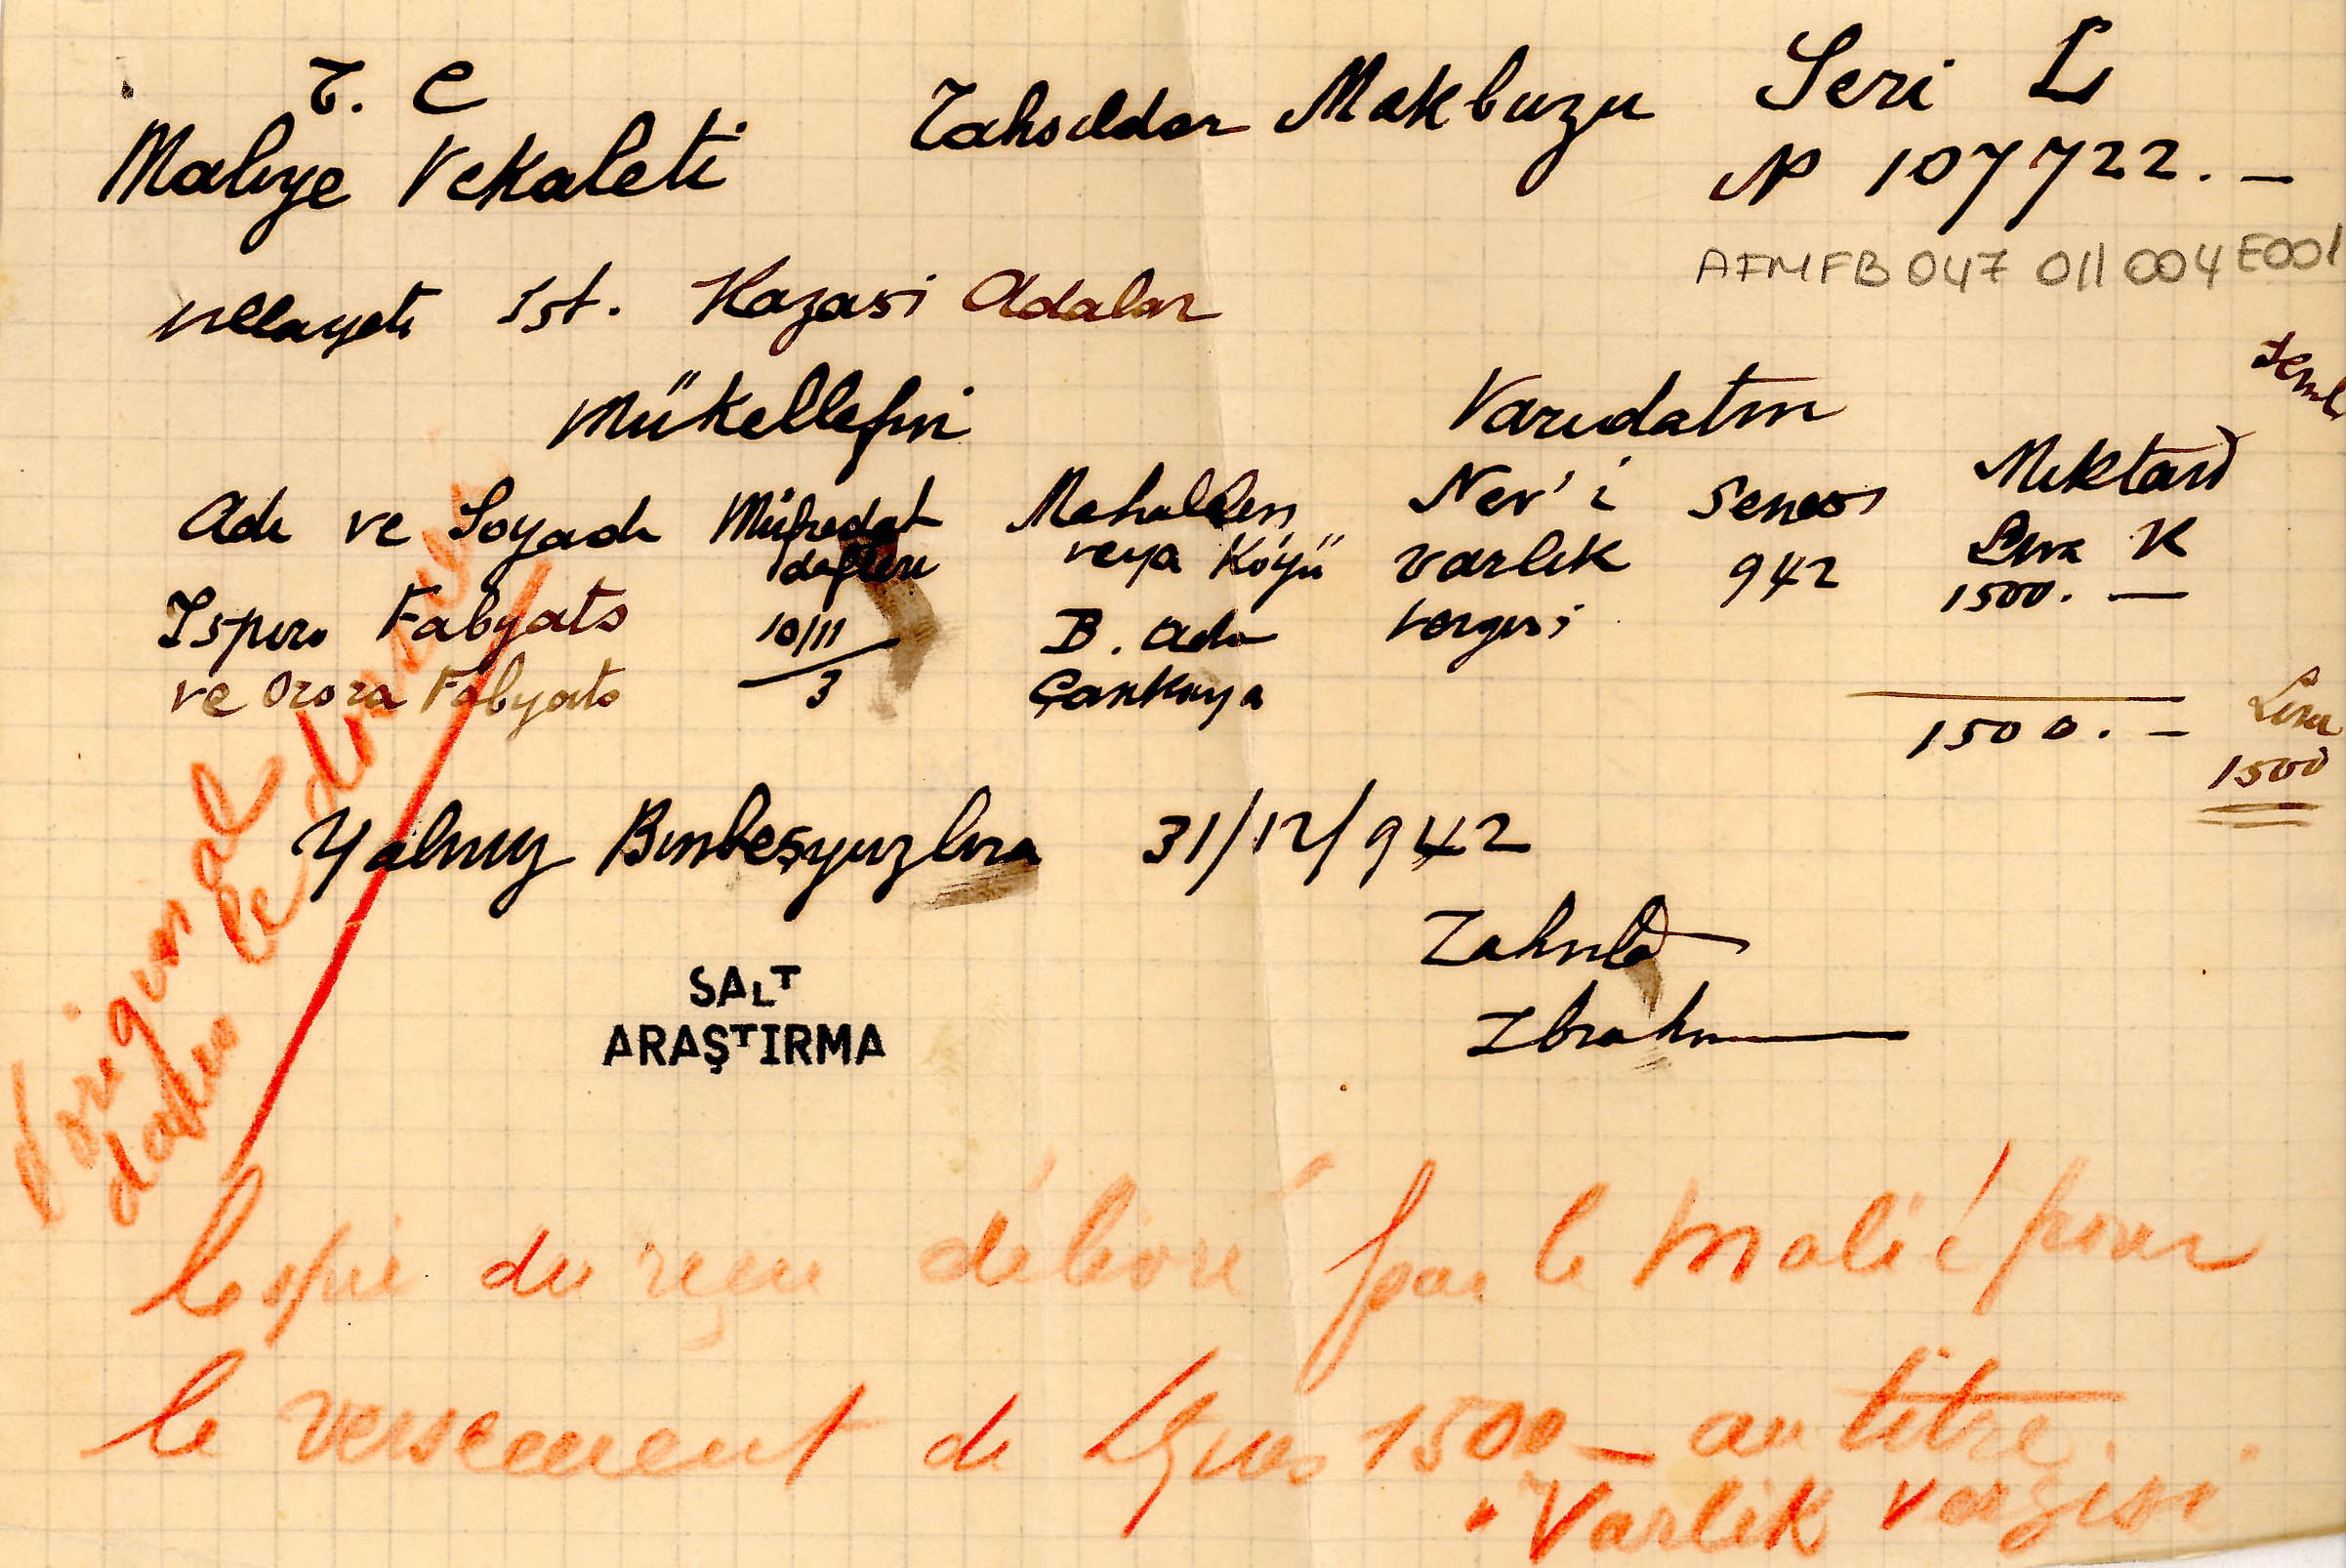 T. C
Maliye Vekaleti
Tahsildar Makbuzu
Seri L
No 107722.—
AFMFB 047 011 004 E001
Vilayeti Ist. Kazasi Adalar
Mükellefin
Varidatın
Adı ve Soyadı
Müfredat defteri
Mahallesi veya Köyü
Nev'i
Senesi
Miktarı
Lira K
Ispiro Fabyato
10/11
3
B. Ada
varlık
vergisi
942
1500. —
ve Orora Fabyato
Çankaya
1500. —
Lira
1500
Yalnız Binbeşyüzlira 31/12/942
Tahsild
Ibrahim
SALT
ARAŞTIRMA
l'original
dans le
Copie du reçu délivré par le Malié pour
le versement de Ltques 1500— au titre
"Varlik vergisi